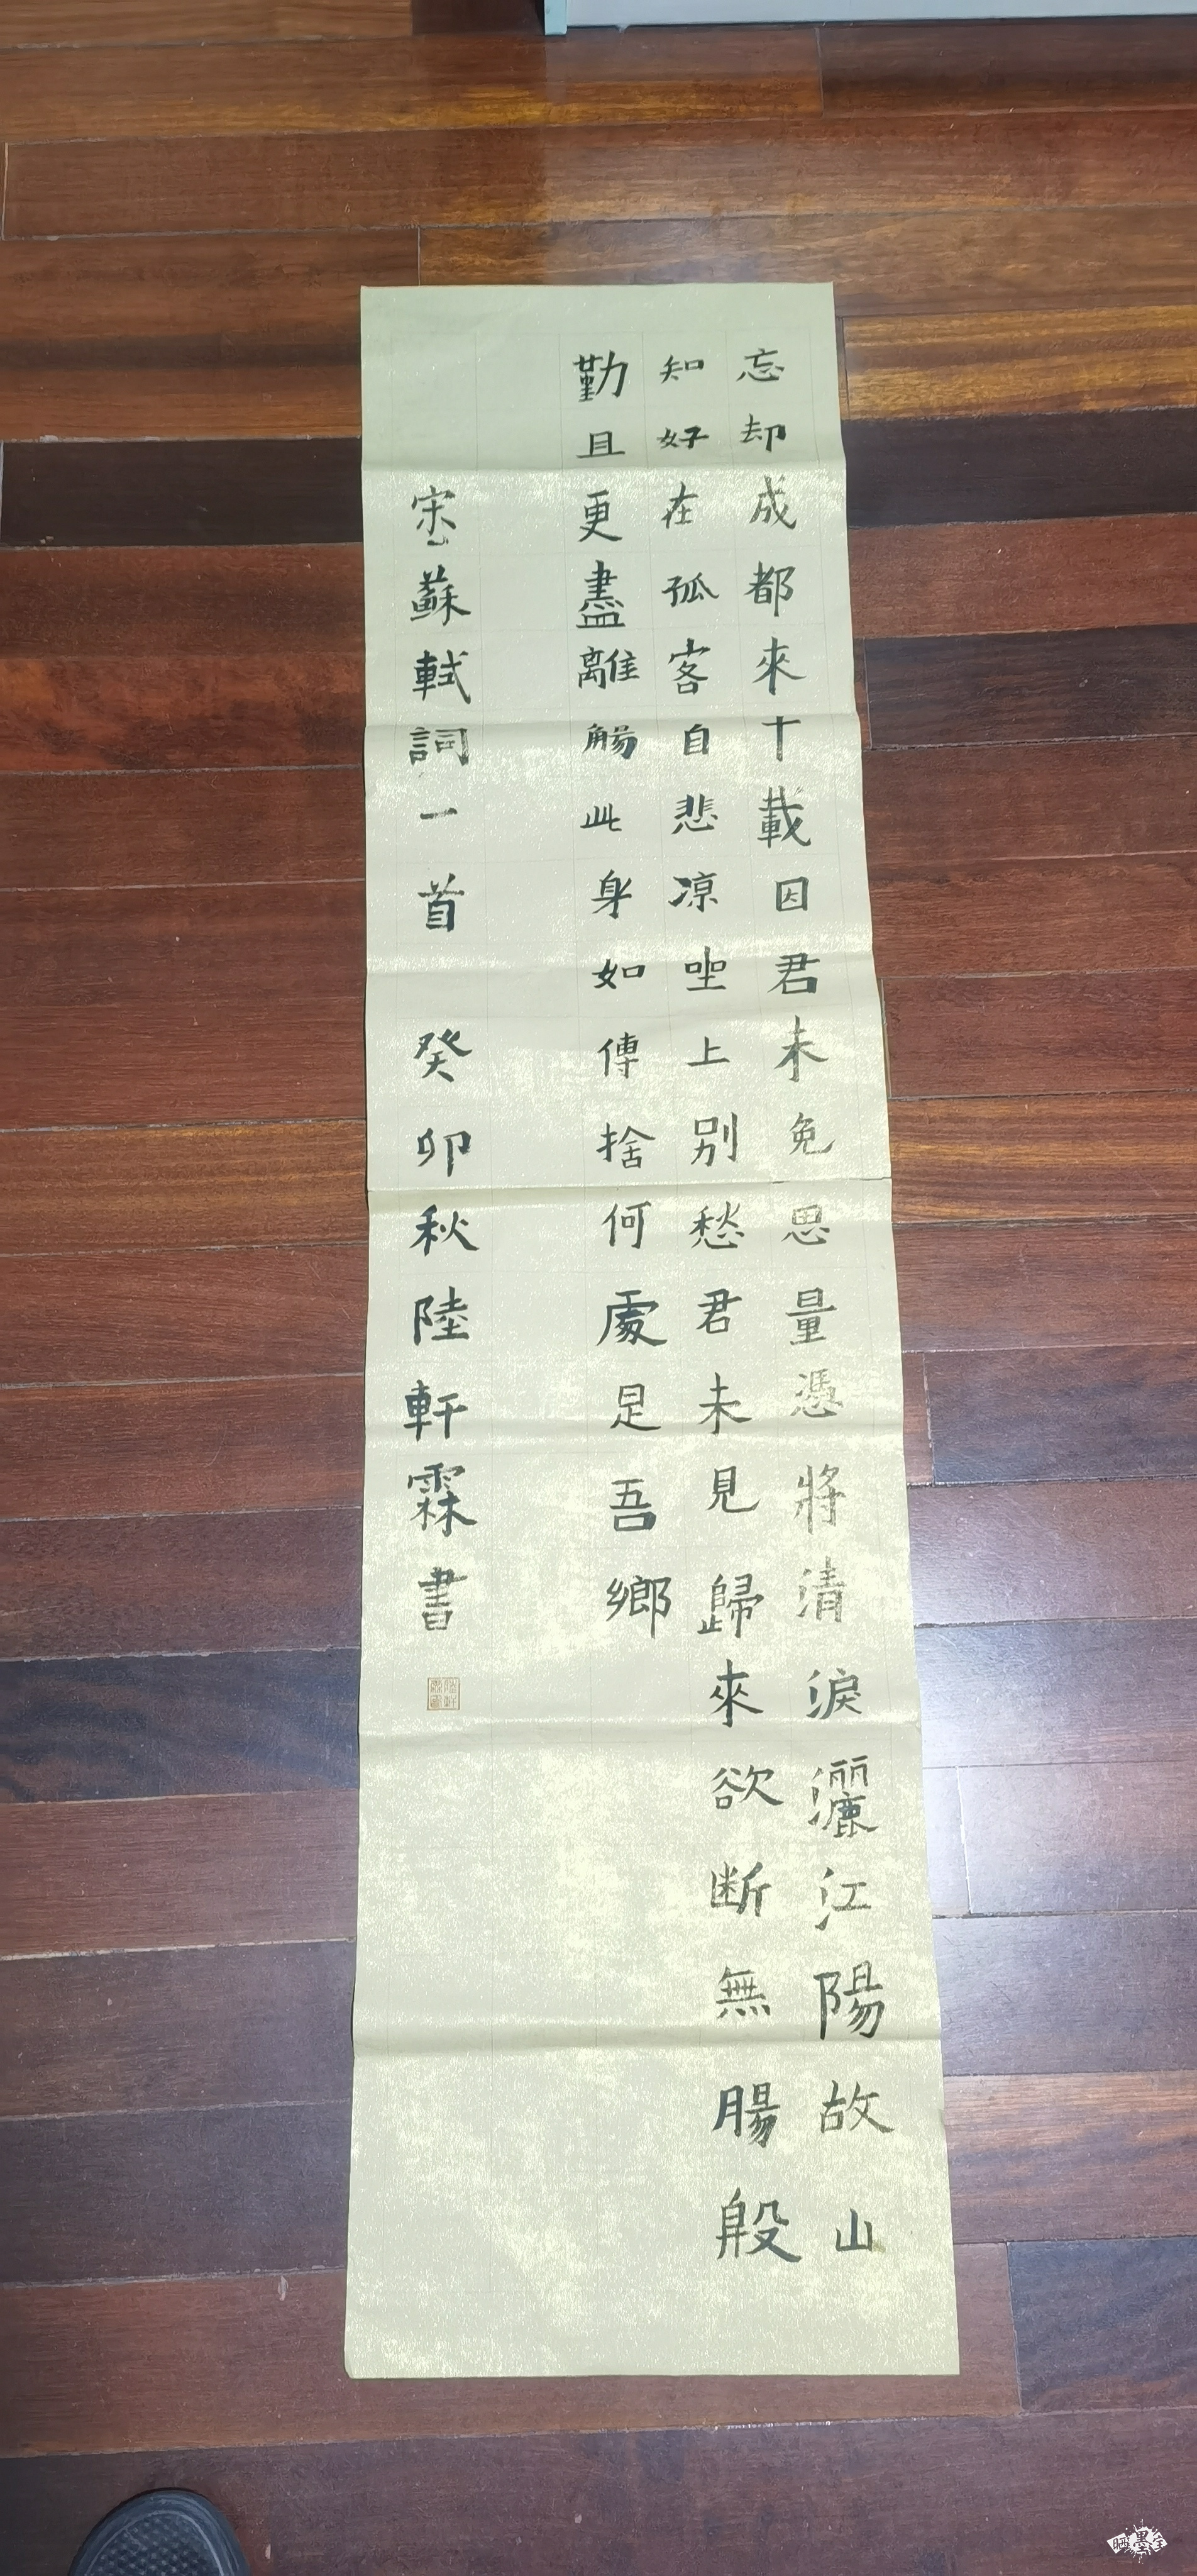 忘却成都來十載因君未免思量憑將清淚灑江陽故山
知好在孤客自悲涼坐上別愁君未見歸來欲斷無腸殷
勤且更盡離觴此身如傳捨何處是吾鄉
宋蘇軾詞一首 癸卯秋陸軒霖書